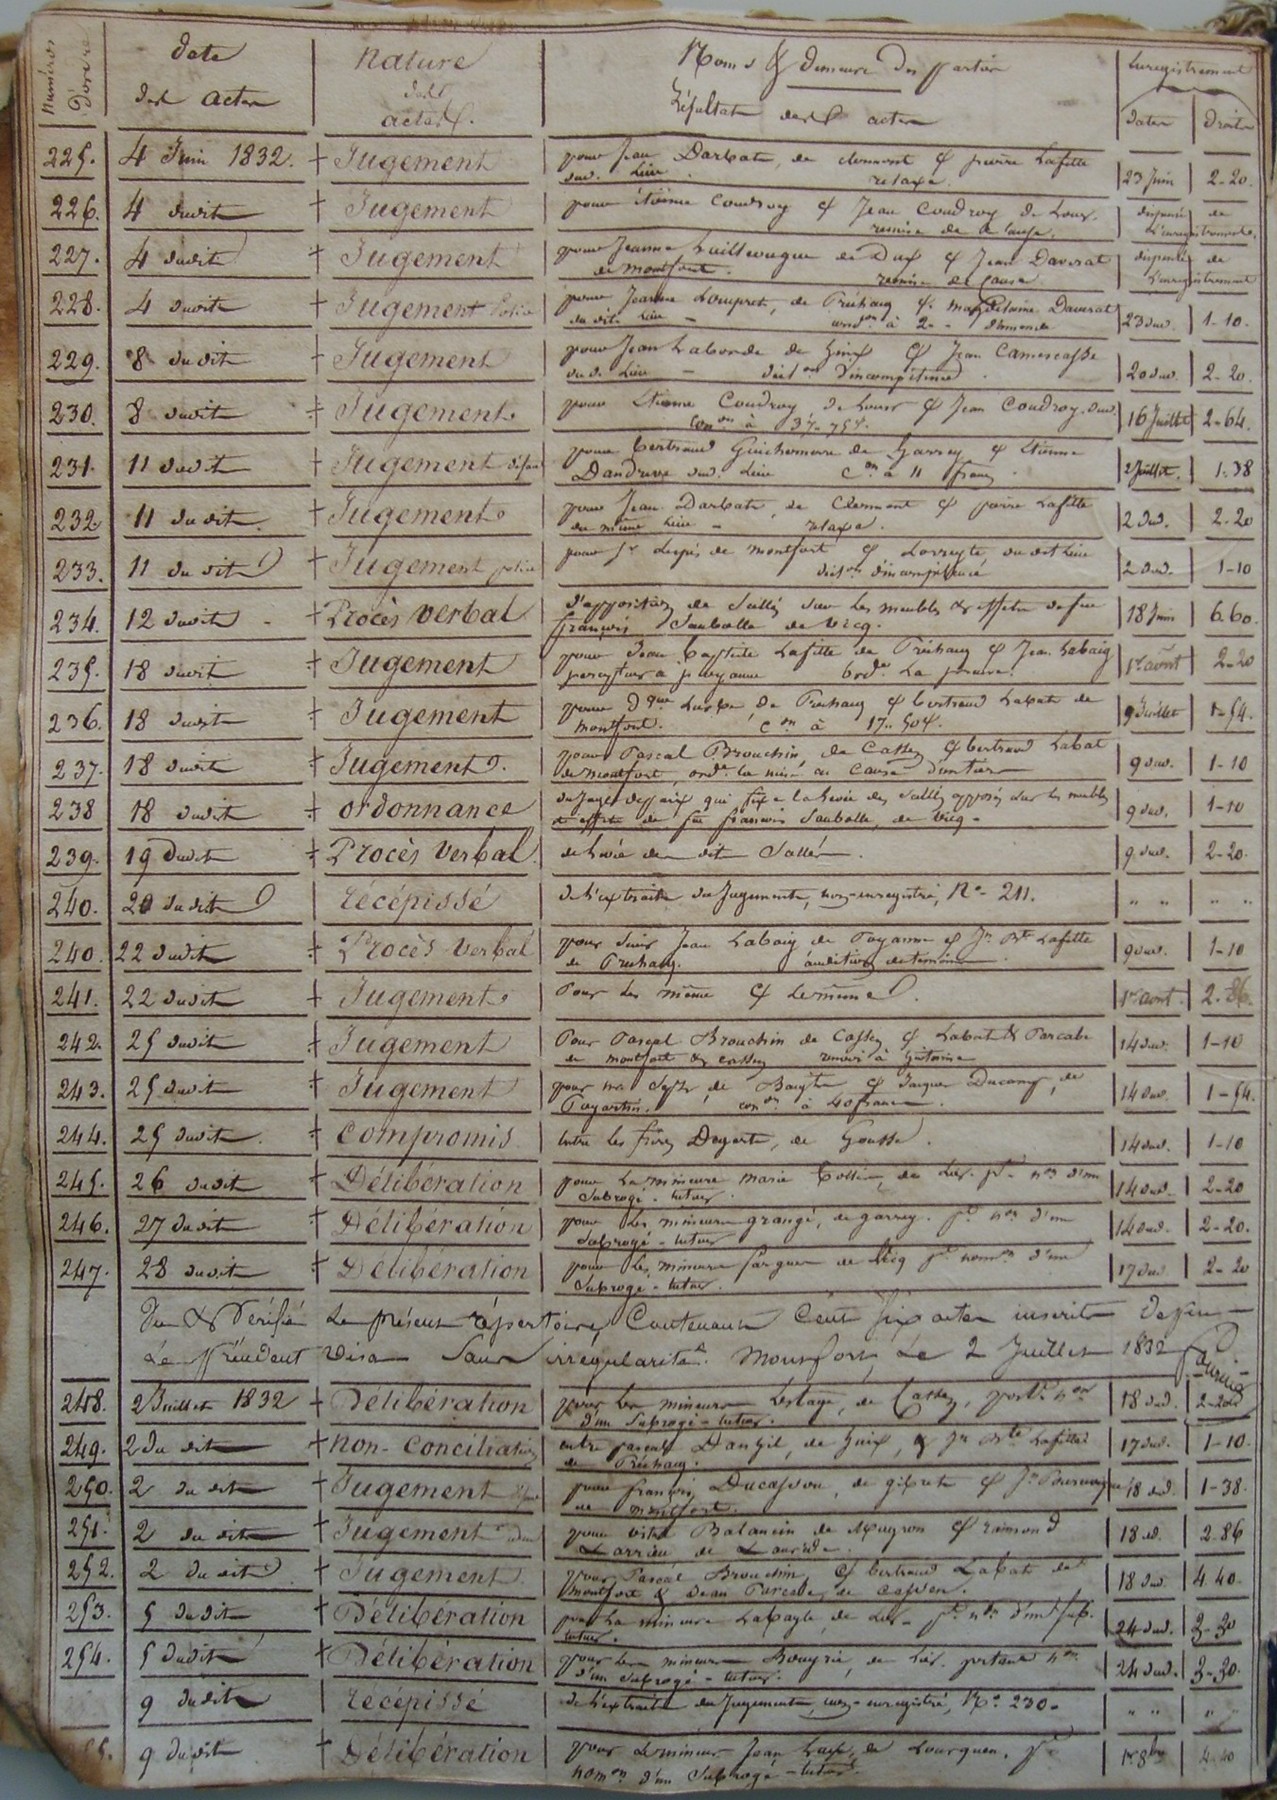 Numéros d'ordre
date des actes
nature des actes.
Noms & demeure des parties
Résultats des actes
Enregistrement
dates
Droits
225. 4 Juin 1832. + Jugement pour Jean Darbats, de clermont & pierre Lafitte
dud. Lieu. relaxe. 23 Juin 2-20.
226. 4 dudit + Jugement pour étienne Coudroy & Jean Coudroy de Lour.
remise de la cause. dispensé de l'enregistrement.
227. 4 dudit + Jugement pour Jeanne de Dax & Jean Daverat
de montfort. remise de Cause dispensé de l'enregistrement
228. 4 dudit + Jugement Police pour Jeanne Lomprets, de Préchacq & magdelaine Daverat
du dit Lieu - à 2 - d'amende 23 dud. 1-10.
229. 8 du dit + Jugement pour Jean Laborde de hinx & Jean Camescasse
du d. Lieu - d'incompétence. 20 dud. 2-20.
230. 8 dudit + Jugement. pour étienne Coudroy de Lour & Jean Coudroy dud.
Con.on à 37-75c. 16 Juillet 2-64.
231. 11 dudit + Jugement défaut pour bertrand Guichemerre de Garrey & étienne
dud. Lieu c.on à 11 francs. 2 Juillet. 1-38
232. 11 du dit + Jugement pour Jean Darbats, de Clermont & pierre Lafitte
du même Lieu - relaxe. 2 dud. 2-20
233. 11 du dit + Jugement police pour Lespès de montfort & Lorreyte, du dit Lieu
d'incompétence 2 dud. 1-10
234. 12 dudit - + Procès verbal d'apposition de Scellés sur Les meubles & effets de feu
françois Saubolle de Vicq. 18 Juin 6-60.
235. 18 dudit + Jugement pour Jean baptiste Lafitte de Préchacq & Jean Labaig
percepteur à poyanne ord.e La preuve. 1er août 2-20
236. 18 dudit + Jugement pour dque de Préchacq & bertrand Labat de
montfort. c.on à 17-50c. 9 Juillet 1-54.
237. 18 dudit + Jugement pour Pascal Brouchin, de Cassen & bertrand Labat
de montfort, ord.e la mise en Cause d'un tiers 9 dud. 1-10
238 18 dudit + ordonnance du Juge de paix qui fixe la levée des Scellés apposés sur les meubles
& effets de feu françois Saubolle, de Vicq - 9 dud. 1-10
239. 19 Dudit + Procès verbal. de levée des dits Scellés. 9 dud. 2-20.
240. 20 du dit récépissé de L'extraits du Jugements, non-enregistré, No. 211. " " " "
240. 22 dudit + Procès-verbal pour Sieur Jean Labaig de Poyanne & Jn Bte Lafitte
de Préchacq. audition de témoins. 9 dud. 1-10
241. 22 dudit + Jugement. Pour Les même & Le même. 1er août. 2-86.
242. 25 dudit + Jugement Pour Pascal Brouchin de Cassen & Labat & Parcade
de montfort & cassen renvoi à huitaine 14 dud. 1-10
243. 25 dudit + Jugement pour de & Jacques Ducamp, de
Poyartin. con.on à 40 francs. 14 dud. 1-54.
244. 25 dudit. + compromis. Entre les frères Degarts, de Gousse. 14 dud. 1-10
245. 26 dudit + Délibération pour La mineure marie de Lier. pt non d'un
Subrogé-tuteur. 14 dud. 2-20
246. 27 du dit + Délibération pour Les mineurs grangé, de garrey. pt non d'un
Subrogé-tuteur 14 dud. 2-20.
247. 28 dudit + Délibération pour Les mineurs fargues de Vicq pt nomon d'un
Subrogé-tuteur. 17 dud 2-20
Vu & Vérifié Le présent répertoire, Contenant Cent Six actes inscrits depuis
Le précédent Visa Sans irrégularités. Montfort, Le 2 Juillet 1832
248. 2 Juillet 1832 + Délibération pour Les mineurs Lestage, de Cassen, portt non
d'un Subrogé-tuteur. 18 dud. 2-20
249. 2 du dit + non-conciliation entre pascal Danzil, de hinx, & Jn Bte Lafitte
de Préchacq. 17 dud. 1-10.
250. 2 du dit + Jugement pour françois Ducasson, de gibret & Jn
de montfort. 18 dud. 1-38.
251. 2 du dit + Jugement pour vital Balancin de Mugron & raimond
Larrieu de Laurède. 18 d. 2-86
252. 2 du dit + Jugement pour Pascal Brouchin, & bertrand Labat de
montfort & Jean Parcade, de cassen. 18 dud 4-40.
253. 5 dudit + Délibération pour La mineure Labayle, de Lier - pt non d'un Sub.
tuteur. 24 dud. 3-30
254. 5 dudit + Délibération pour Les mineurs Bougrié, de Lier. portant non
d'un Subrogé-tuteur. 24 dud. 3-30.
9 du dit récépissé de L'extraits du Jugements, non-enregistré, No. 230 - " " " "
255. 9 du dit + Délibération pour Le mineur Jean de Lourquen. pt
nomon d'un Subrogé-tuteur. 1er 8bre 4-40